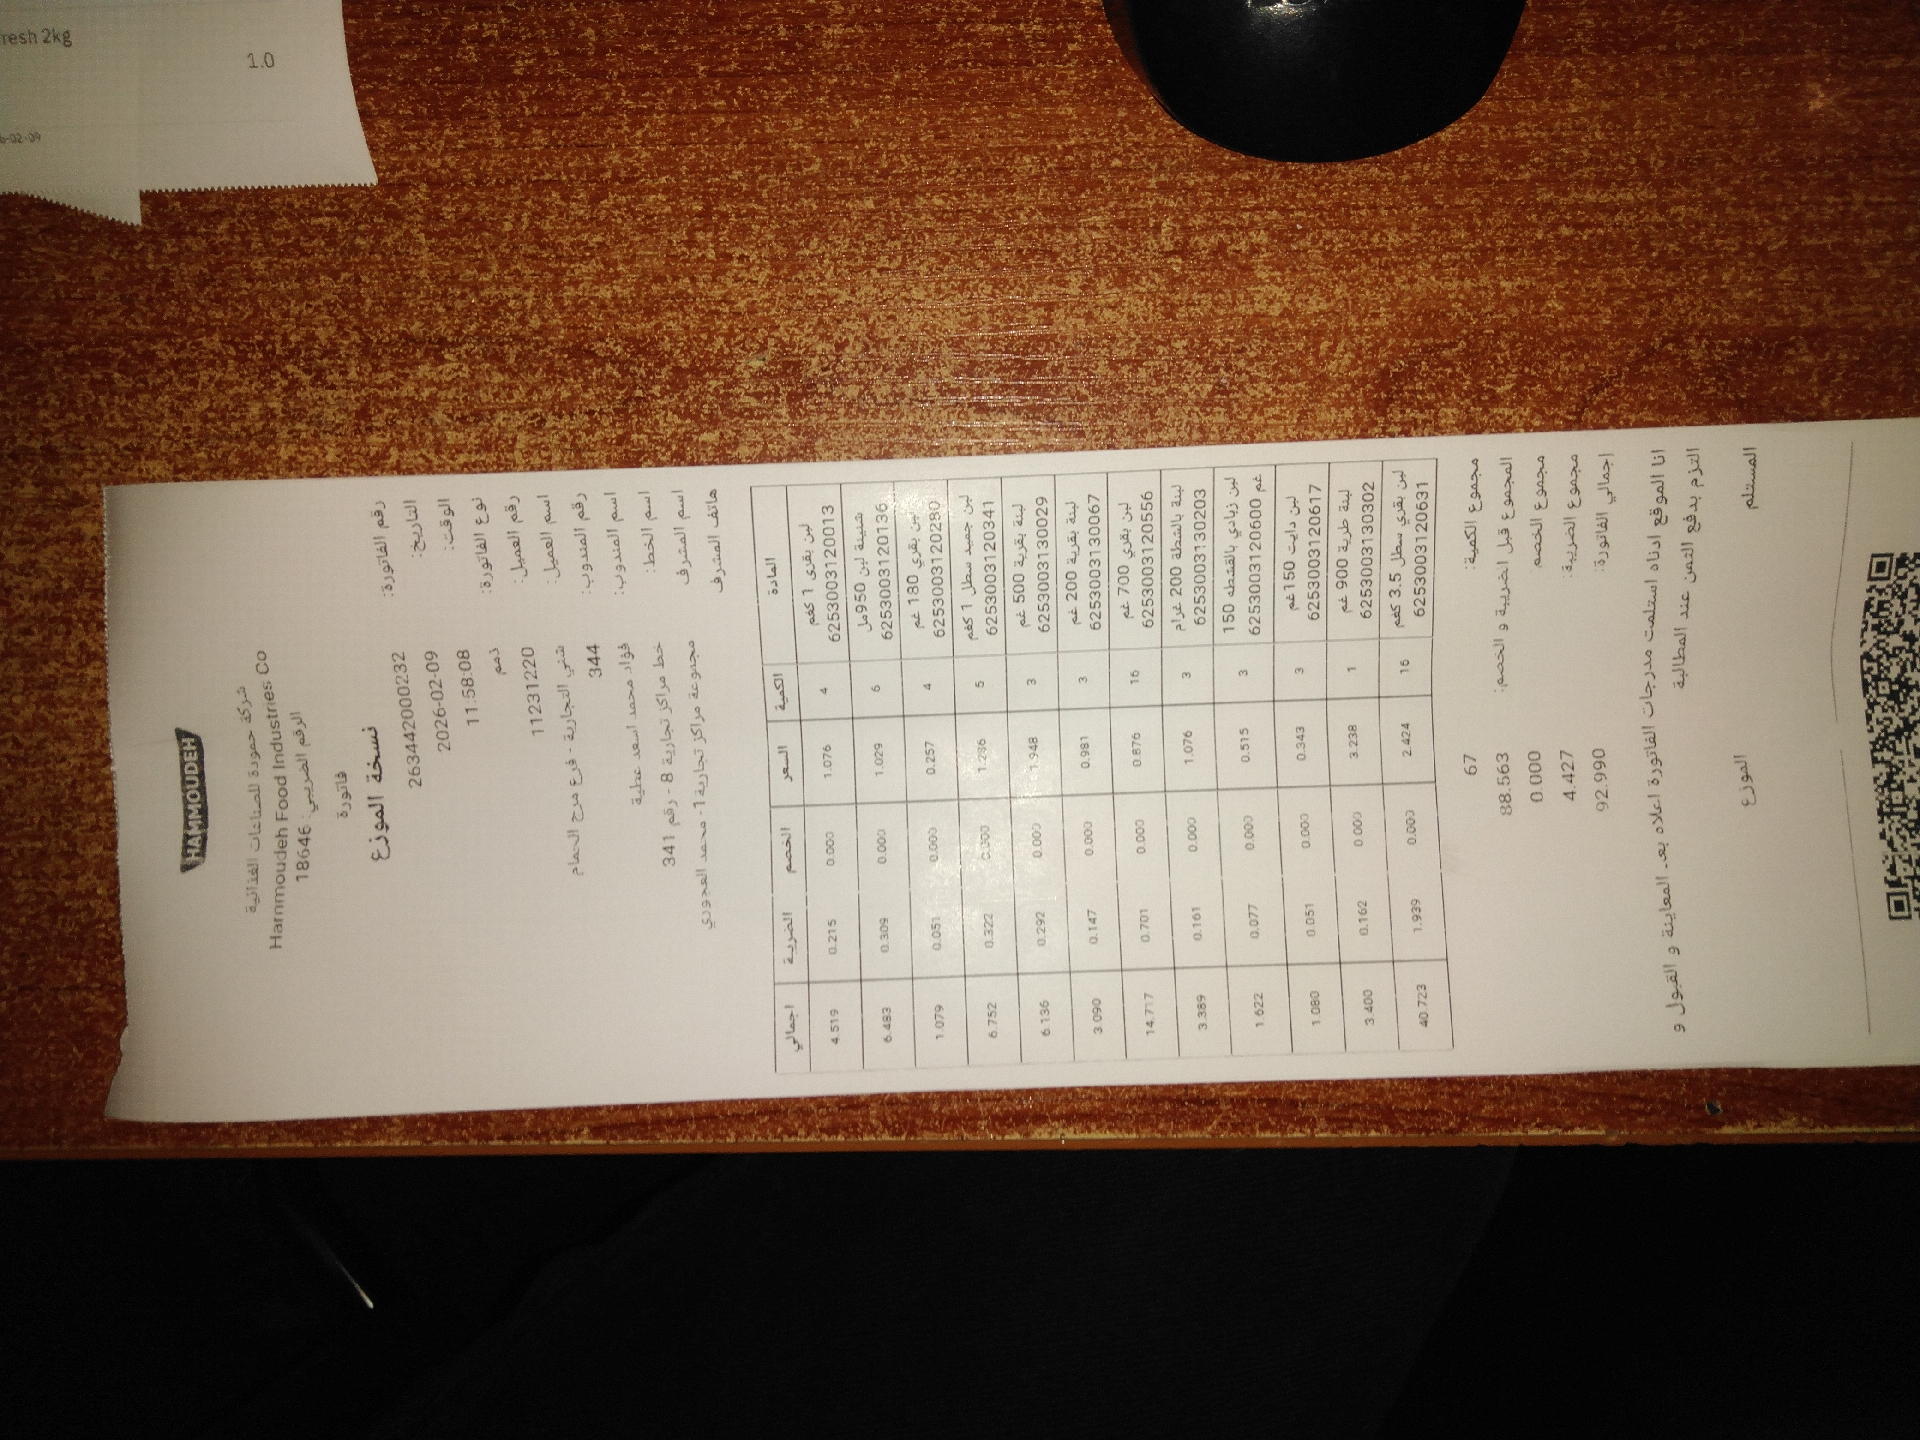 resh 2kg
1.0
6-02-09
HAMMOUDEH
شركة حمودة للصناعات الغذائية
Hammoudeh Food Industries Co
الرقم الضريبي: 18646
فاتورة
نسخة الموزع
رقم الفاتورة: 263442000232
التاريخ: 2026-02-09
الوقت: 11:58:08
نوع الفاتورة: ذمم
رقم العميل: 11231220
اسم العميل: شني التجارية - فرع مرج الحمام
رقم المندوب: 344
اسم المندوب: فؤاد محمد اسعد عطية
اسم الخط: خط مراكز تجارية 8 - رقم 341
اسم المشرف مجموعة مراكز تجارية 1- محمد العجوري
هاتف المشرف
المادة الكمية السعر الخصم الضريبة اجمالي
لبن بقري 1 كغم
6253003120013 4 1.076 0.000 0.215 4.519
شنينة لبن 950مل
6253003120136 6 1.029 0.000 0.309 6.483
لبن بقري 180 غم
6253003120280 4 0.257 0.000 0.051 1.079
لبن جميد سطل 1كغم
6253003120341 5 1.286 0.000 0.322 6.752
لبنة بقرية 500 غم
6253003130029 3 1.948 0.000 0.292 6.136
لبنة بقرية 200 غم
6253003130067 3 0.981 0.000 0.147 3.090
لبن بقري 700 غم
6253003120556 16 0.876 0.000 0.701 14.717
لبنة بالشطة 200 غرام
6253003130203 3 1.076 0.000 0.161 3.389
لبن زبادي بالقشطه 150
غم 6253003120600 3 0.515 0.000 0.077 1.622
لبن دايت 150غم
6253003120617 3 0.343 0.000 0.051 1.080
لبنة طرية 900 غم
6253003130302 1 3.238 0.000 0.162 3.400
لبن بقري سطل 3.5 كغم
6253003120631 16 2.424 0.000 1.939 40.723
مجموع الكمية: 67
المجموع قبل الضريبة و الخصم: 88.563
مجموع الخصم 0.000
مجموع الضريبة: 4.427
إجمالي الفاتورة: 92.990
انا الموقع ادناه استلمت مدرجات الفاتورة اعلاه بعد المعاينة و القبول و
التزم بدفع الثمن عند المطالبة
المستلم الموزع